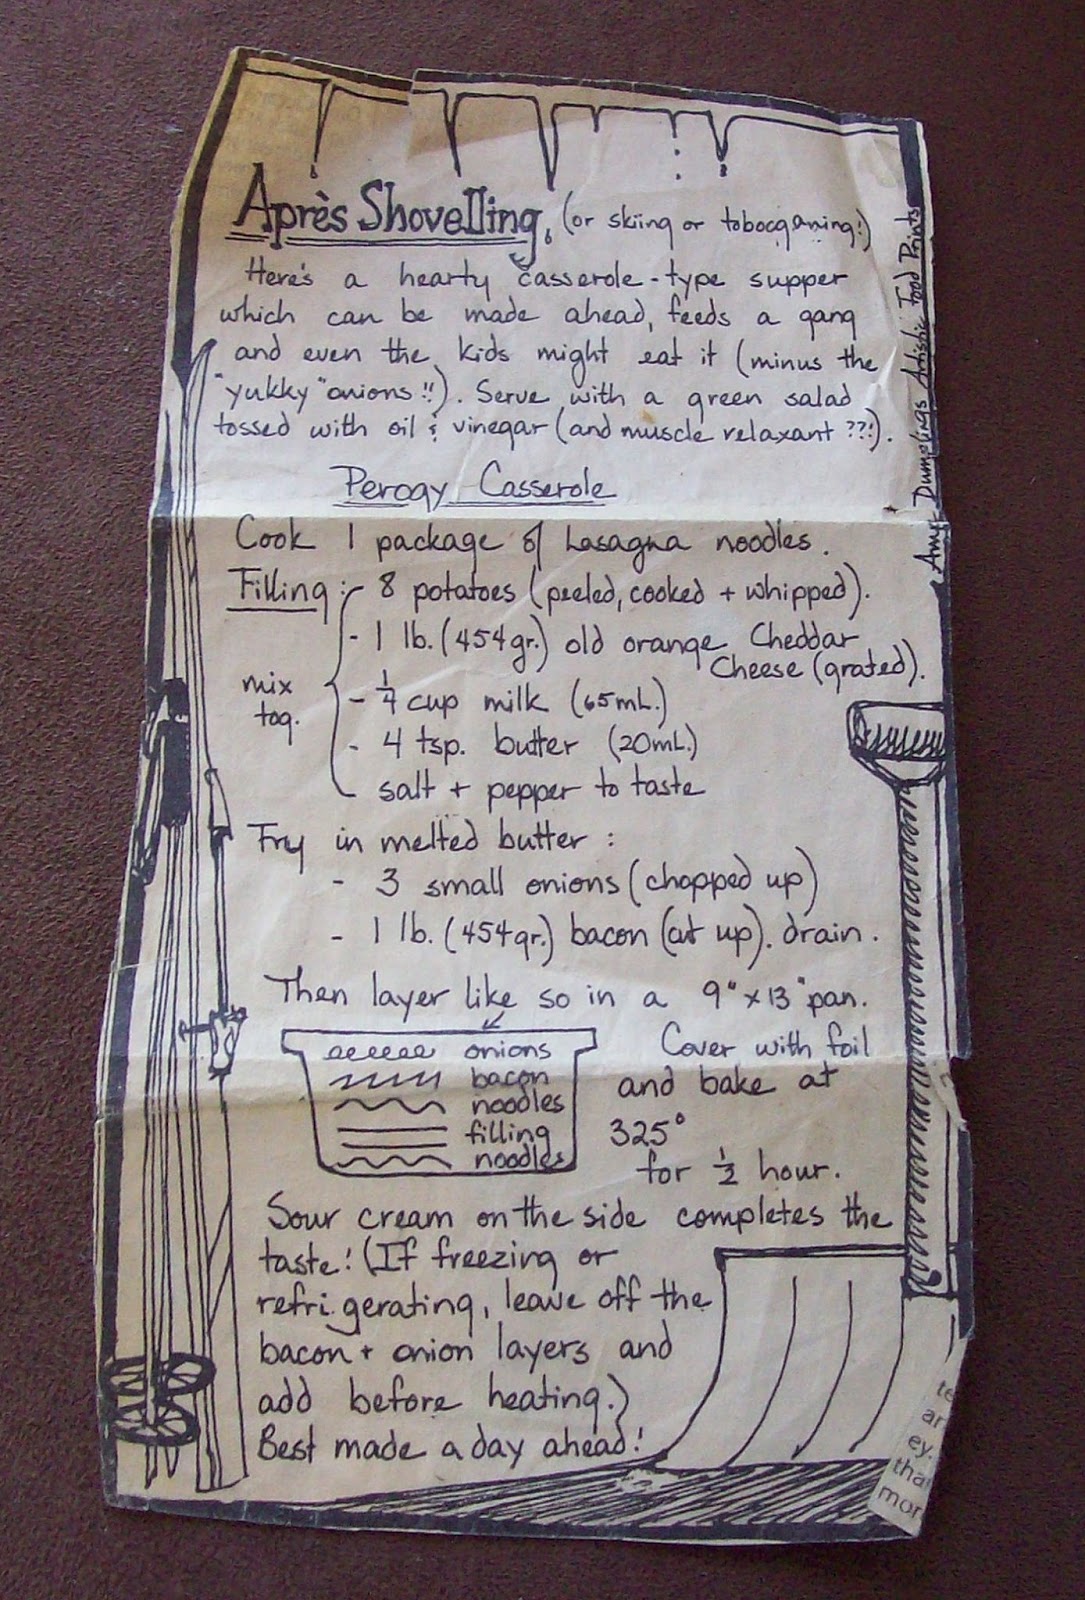 Après Shovelling, (or skiing or tobogganing!)
Here's a hearty casserole-type supper
which can be made ahead, feeds a gang
and even the kids might eat it (minus the
"yukky" onions!!). Serve with a green salad
tossed with oil & vinegar (and muscle relaxant ??!).
Perogy Casserole
Cook 1 package of Lasagna noodles.
Filling:
mix
tog.
- 8 potatoes (peeled, cooked + whipped).
- 1 lb. (454gr.) old orange Cheddar
Cheese (grated).
- 1/4 cup milk (65mL.)
- 4 tsp. butter (20mL.)
salt + pepper to taste
Fry in melted butter:
- 3 small onions (chopped up)
- 1 lb. (454gr.) bacon (cut up). drain.
Then layer like so in a 9" x 13" pan.
onions
bacon
noodles
filling
noodles
Cover with foil
and bake at
325°
for 1/2 hour.
Sour cream on the side completes the
taste! (If freezing or
refrigerating, leave off the
bacon + onion layers and
add before heating.)
Best made a day ahead!
Amy-Dumplings Artistic Food Prints
te
ar
ey.
tha
mor